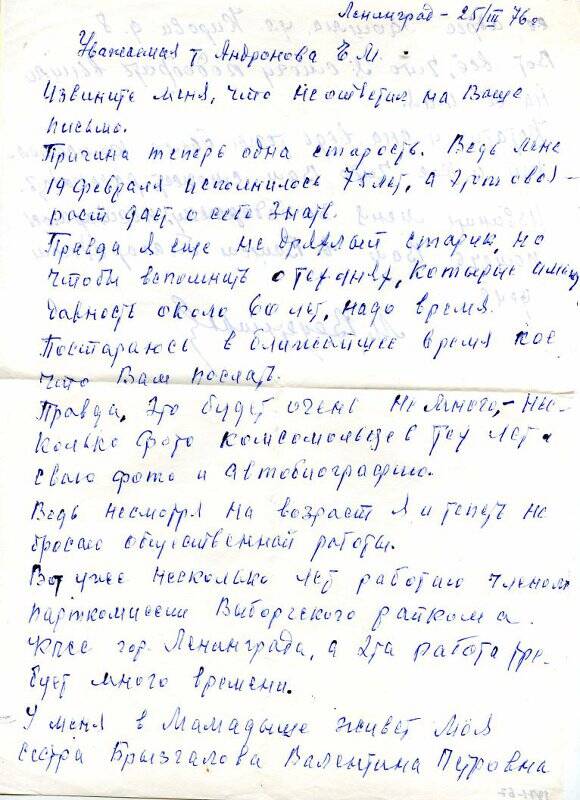 Ленинград - 25/III 76 г
Уважаемая т Андронова Е. М.
Извините меня, что не ответил на Ваше
письмо.
Причина теперь одна старость. Ведь мне
19 февраля исполнилось 75 лет, а этот воз-
раст дает о себе знать.
Правда я еще не дряхлый старик, но
чтобы вспомнить о тех днях, которые имеют
давность около 60 лет, надо время.
Постараюсь в ближайшее время кое
что Вам послать.
Правда, это будет очень не много, - нес-
колько фото комсомольцев тех лет.
свою фото и автобиографию.
Ведь несмотря на возраст я и теперь не
бросаю общественной работы.
Вот уже несколько лет работаю членом
парткомиссии Выборгского райкома.
КПСС гор. Ленинграда, а эта работа тре-
бует много времени.
У меня в Мамадыше живет моя
сестра Брызгалова Валентина Петровна